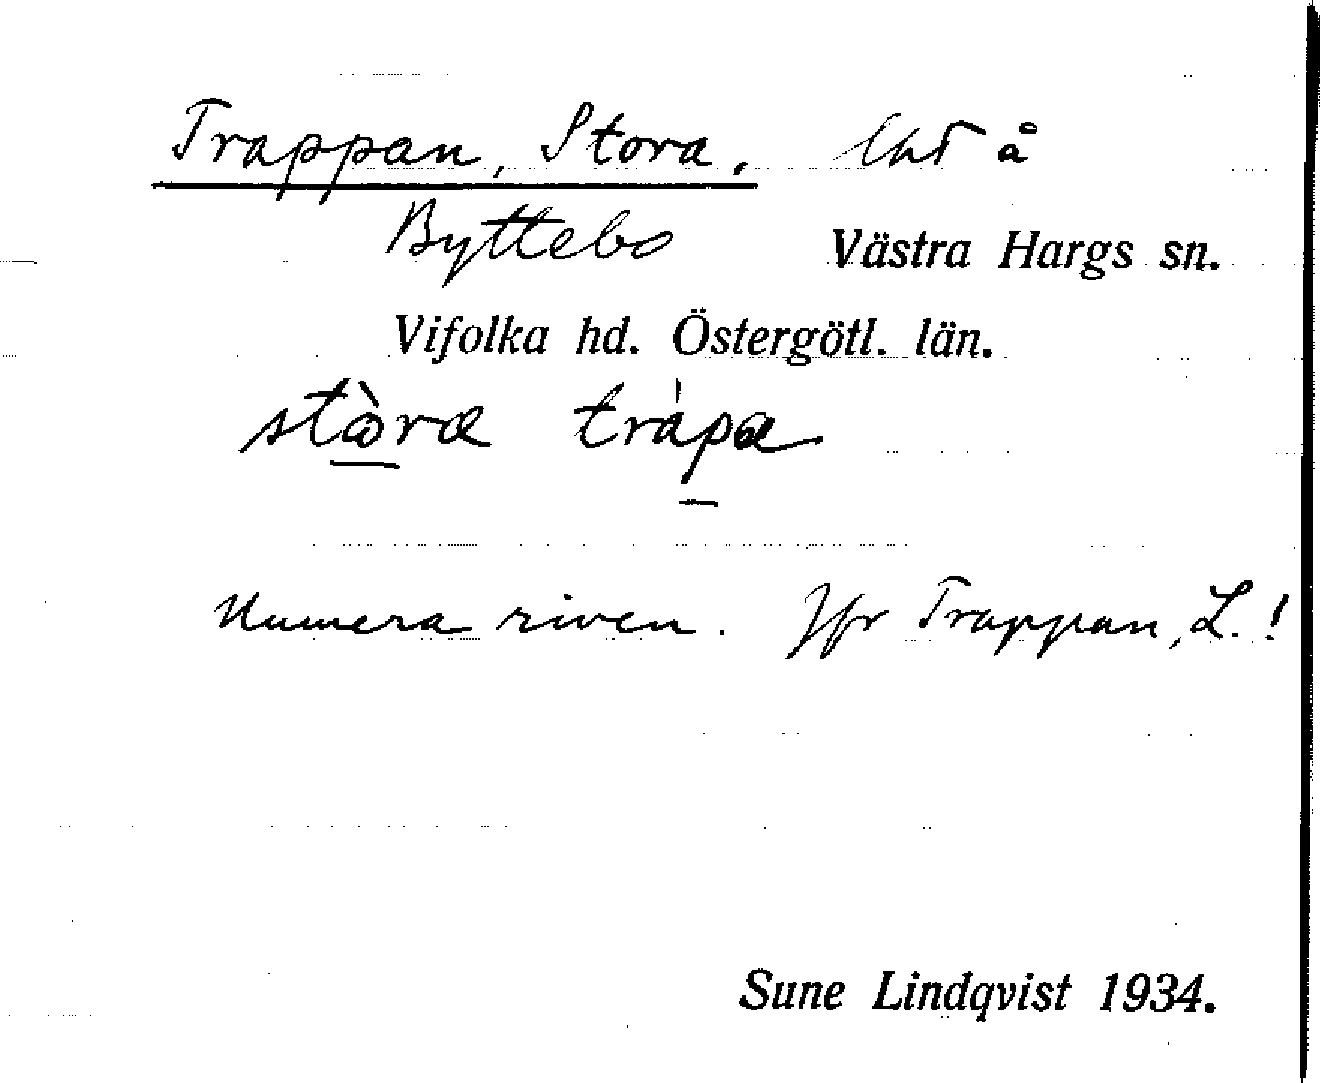 Trappan, Stora. lht å
Byttebo Västra Hargs sn.
Vifolka hd. Östergötl. län.
stòra trápa
Numera riven. Jfr Trappan, L.!
Sune Lindqvist 1934.